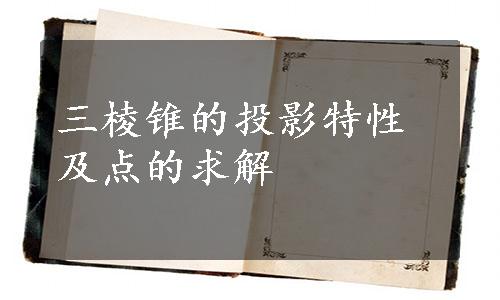 三棱锥的投影特性
及点的求解